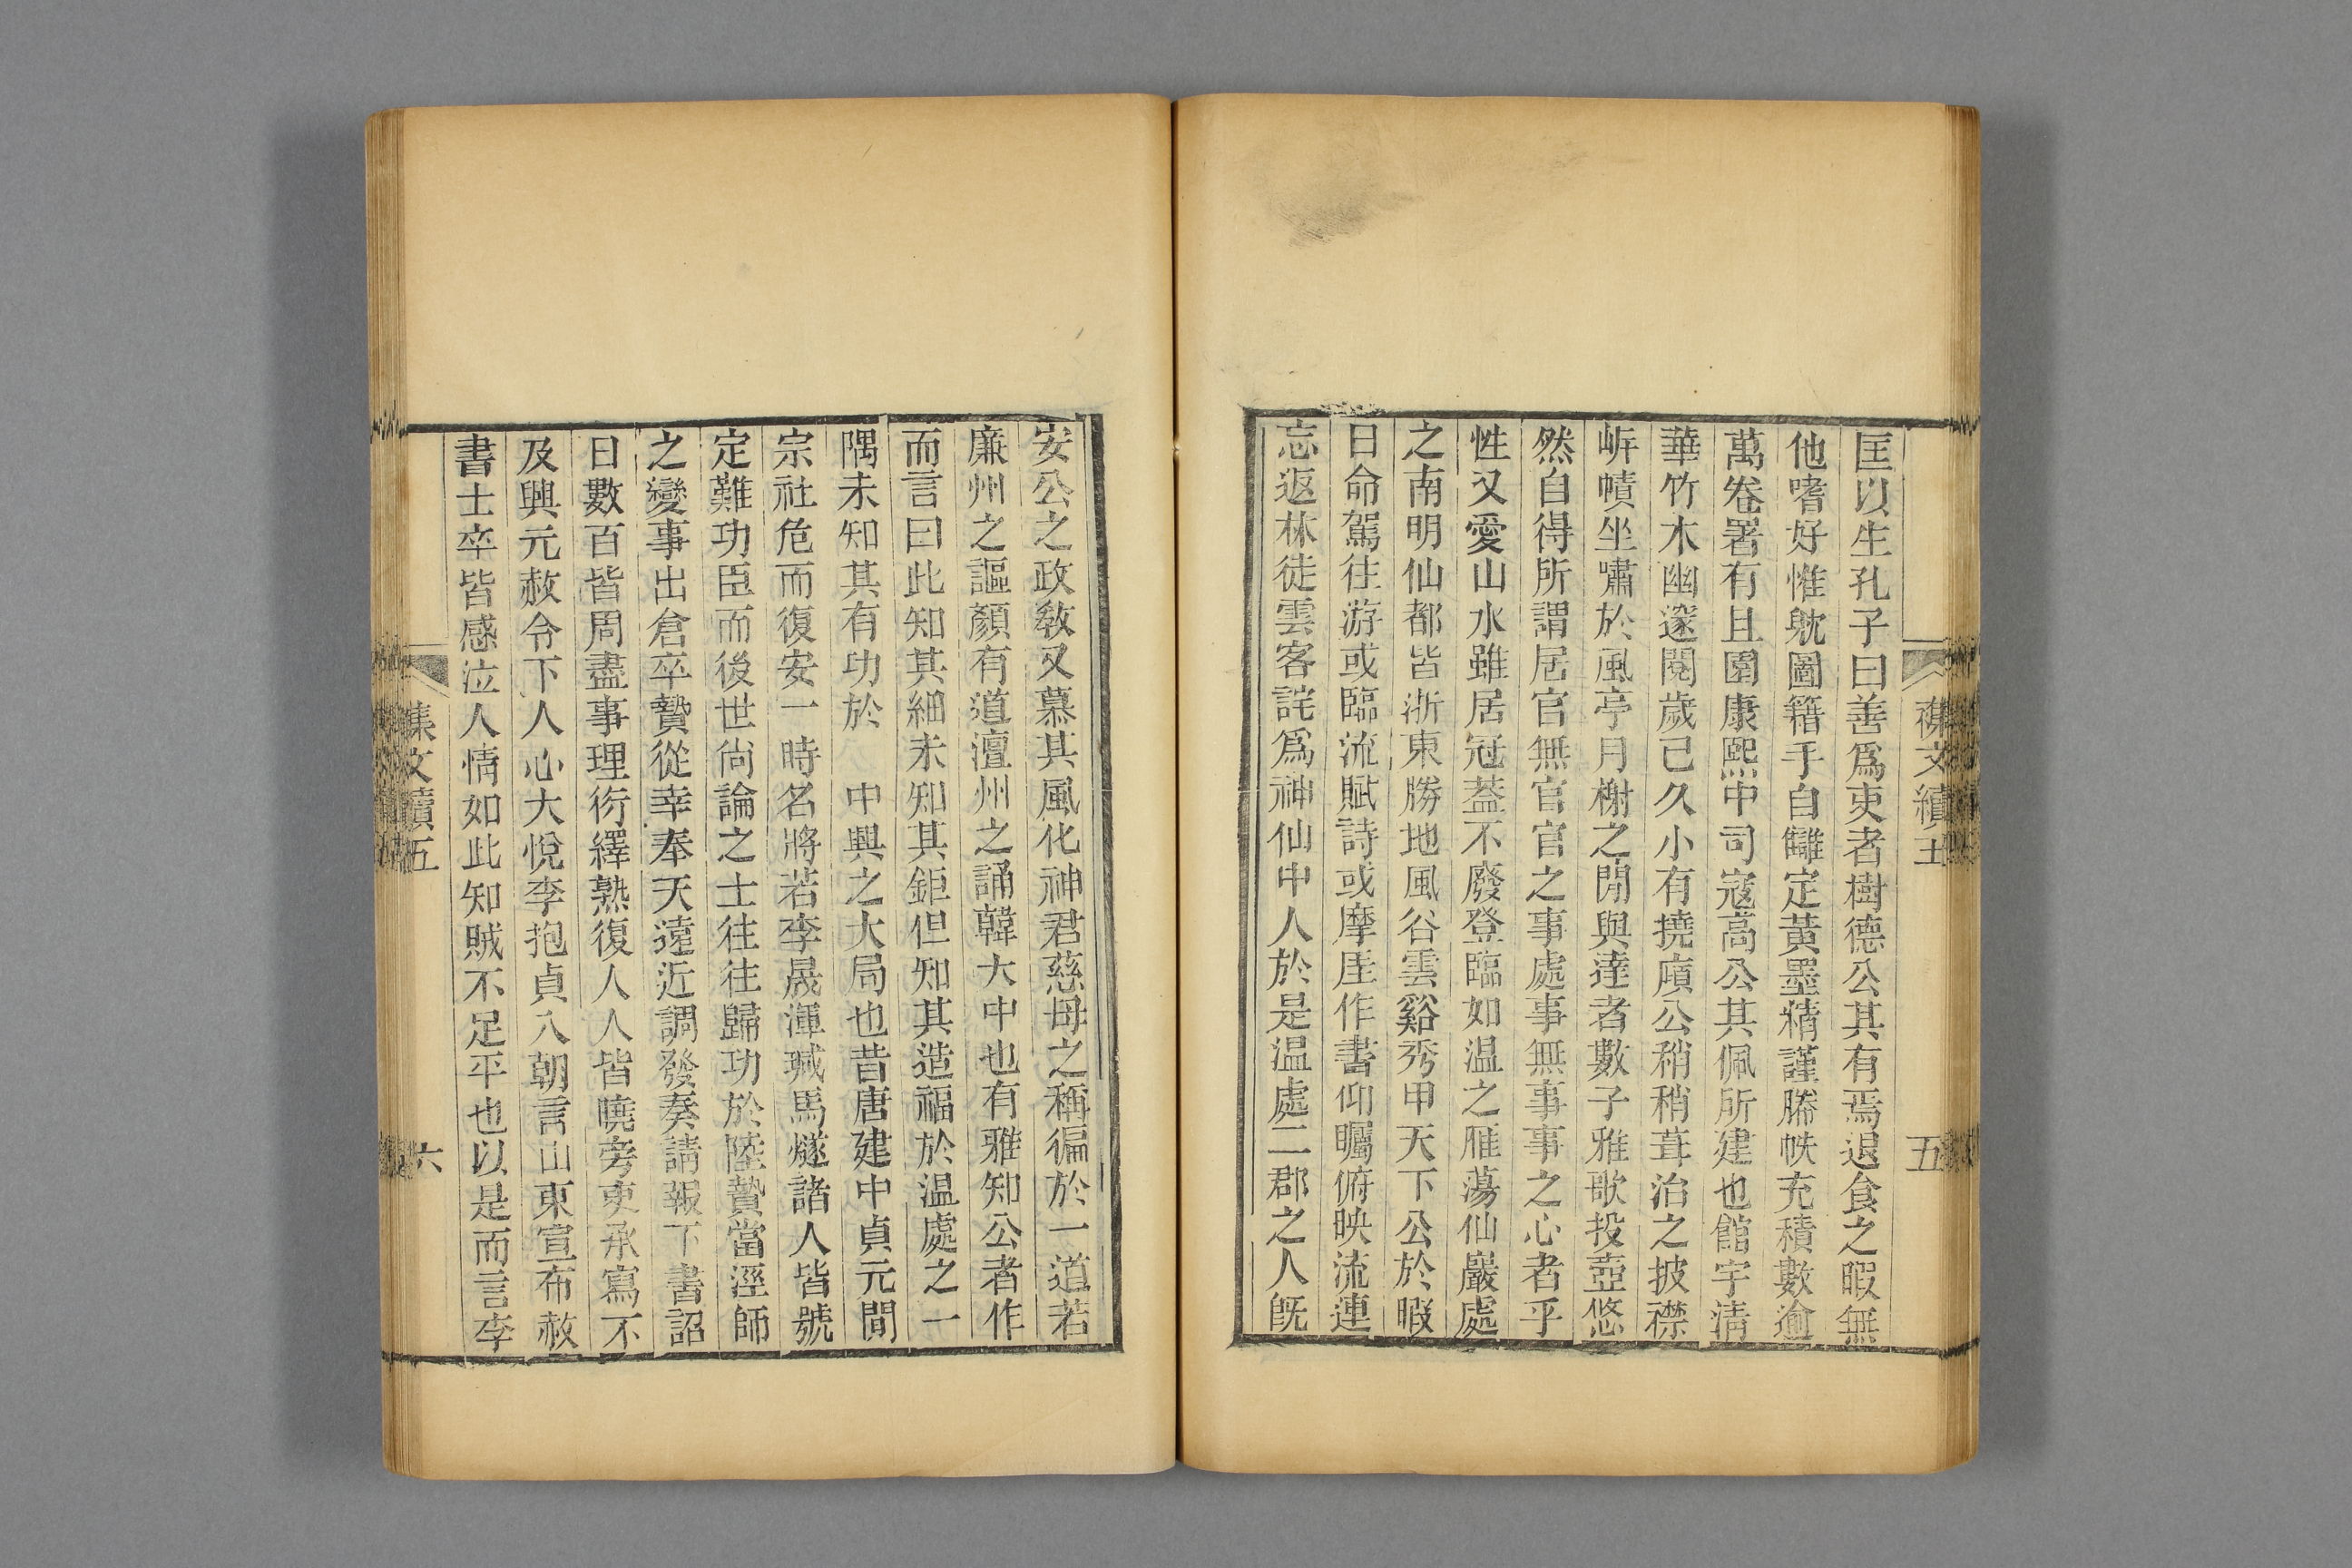 集文續五
五
匡以生孔子曰善爲吏者樹德公其有焉退食之暇無
他嗜好惟躭圖籍手自讎定黃墨精謹縢帙充積數逾
萬卷署有且園康熙中司寇高公其佩所建也館宇淸
華竹木幽邃閱歲已久小有撓廎公稍稍葺治之披襟
岸幘坐嘯於風亭月榭之閒與達者數子雅歌投壺悠
然自得所謂居官無官官之事處事無事事之心者乎
性又愛山水雖居冠蓋不廢登臨如温之雁蕩仙巖處
之南明仙都皆浙東勝地風谷雲谿秀甲天下公於暇
日命駕往游或臨流賦詩或摩厓作書仰矚俯映流連
忘返林徒雲客詫爲神仙中人於是温處二郡之人旣
安公之政敎又慕其風化神君慈母之稱徧於一道若
廉州之謳顏有道澶州之誦韓大中也有雅知公者作
而言曰此知其細未知其鉅但知其造福於温處之一
隅未知其有功於 中興之大局也昔唐建中貞元閒
宗社危而復安一時名將若李晟渾瑊馬燧諸人皆號
定難功臣而後世尙論之士往往歸功於陸贄當涇師
之變事出倉卒贄從幸奉天遠近調發奏請報下書詔
日數百皆周盡事理衍繹熟復人人皆曉旁吏承寫不
及興元赦令下人心大悅李抱貞入朝言山東宣布赦
書士卒皆感泣人情如此知賊不足平也以是而言李
集文續五
六